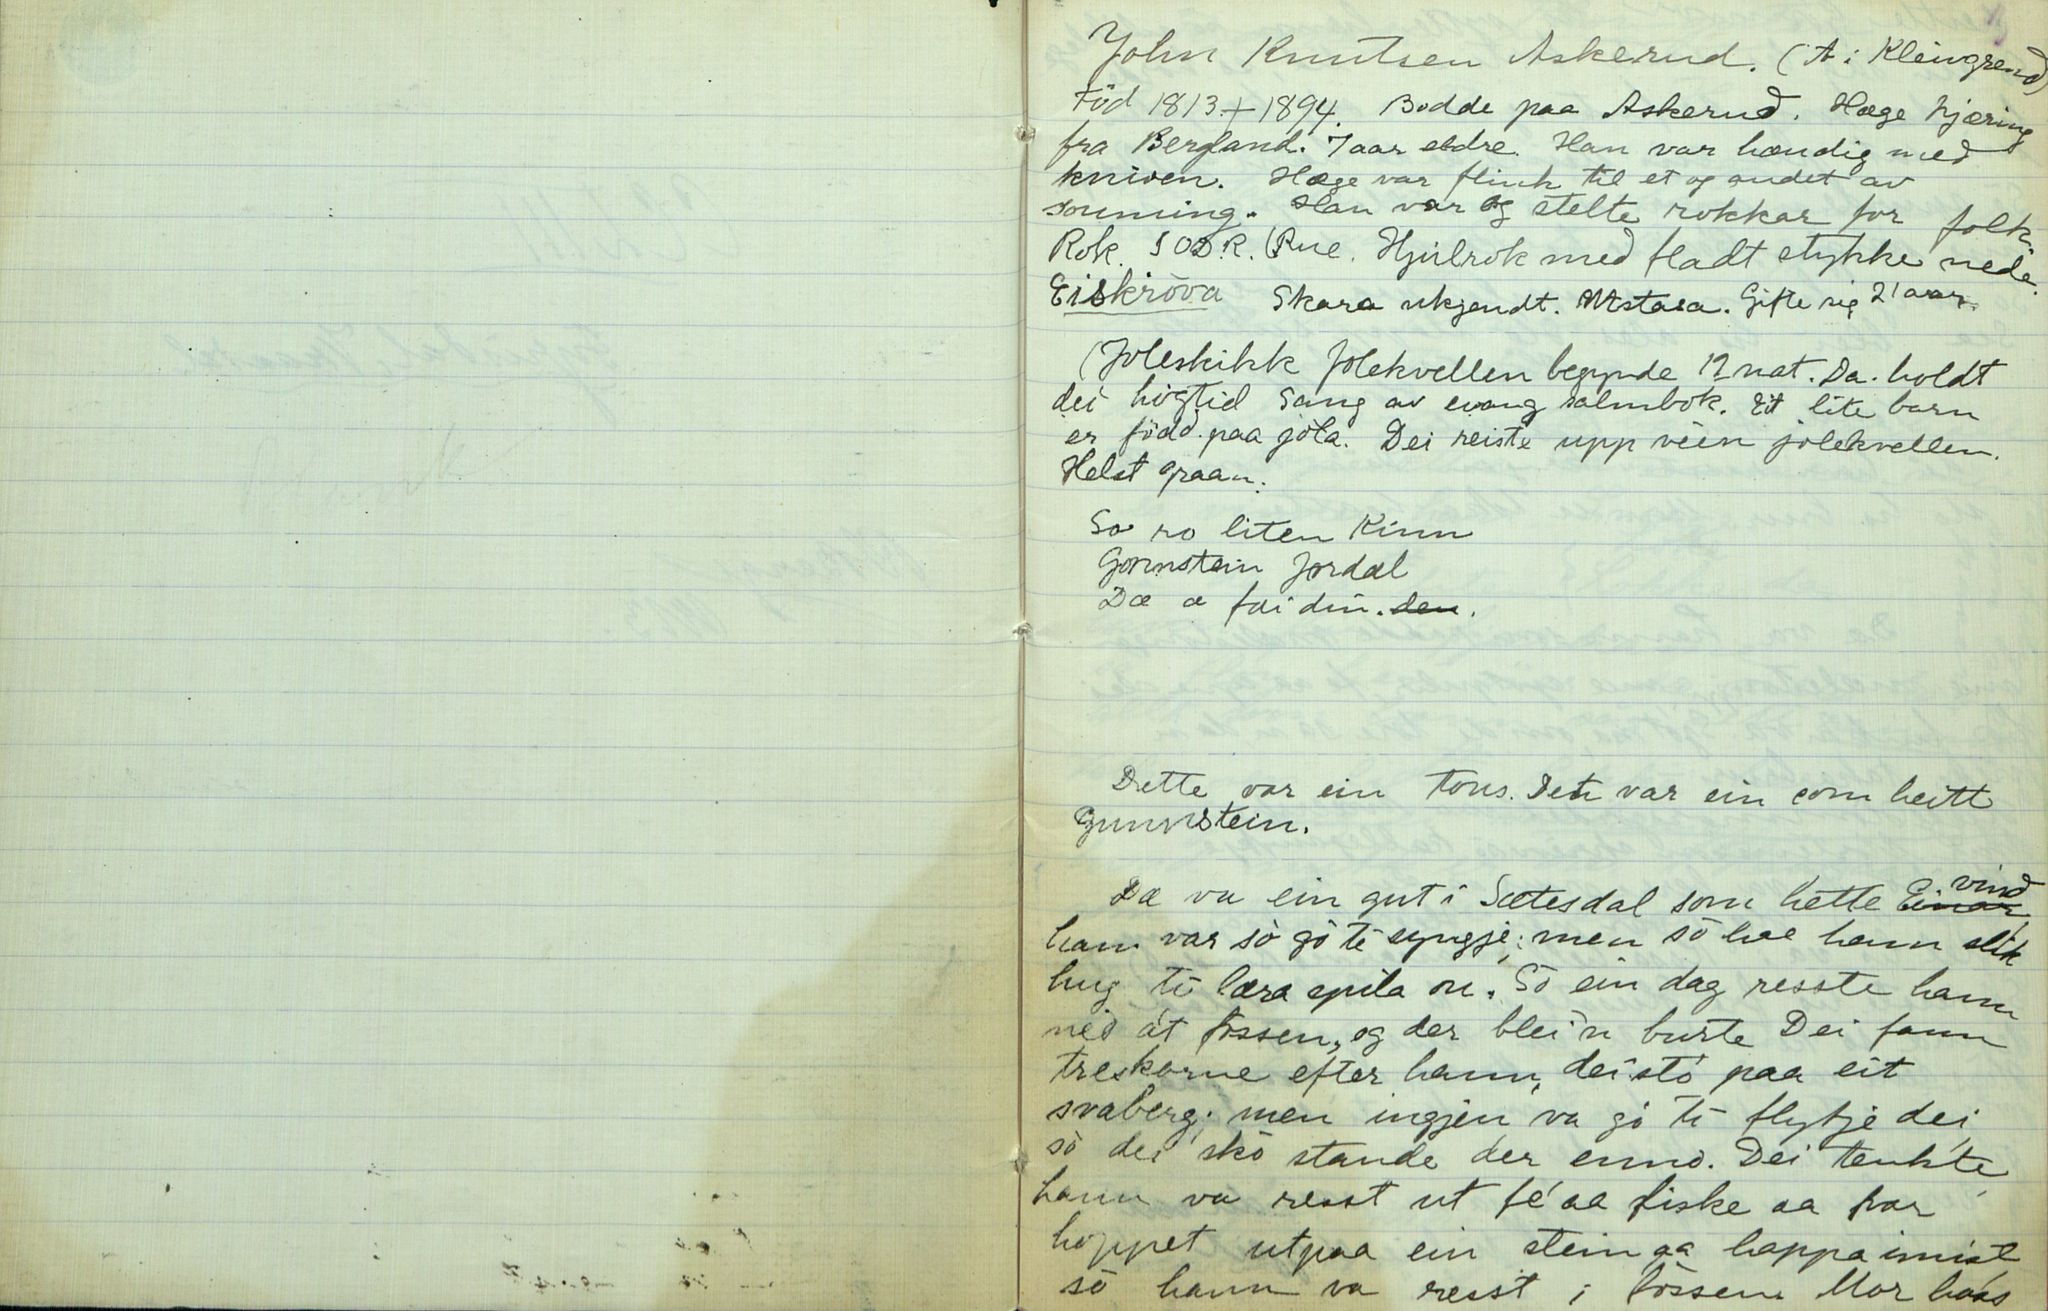 John Knutsen Askerud. (A i Kleivgrend)
Född 1813 + 1894. Bodde paa Askerud. Hæge kjæring
fra Bergland. 7 aar eldre. Han var hændig med
kniven. Hæge var flink til et og andet av
souming. Han var og stelte rokkar for folk.
Rok. S O D. R. (Rue. Hjulrok med fladt stykke nede.
Eiskrova Skara ukjendt. Gifte sig 21 aar.
(Joleskikk Jolekvellen begynde 12 nat. Da holdt
dei högtid Sang av evang salmbok. Eit lite barn
er född paa jola. Dei reiste upp veien jolekvellen.
Helst graan.
So ro liten Kinn
Gonnstein Jordal
Dæ æ fai din. den.
Dette var ein Tons. Det var ein som heitt
Gunnstein.
Dæ va ein gut i Sætesdal som hette Einar vind
han var sò gò tè syngje; men sò hae hann slik
hug tè læra spila on. Sò ein dag resste hann
ned át fossen, og der blei'n burte Dei fann
treskorne efter hann, dei stó paa eit
svaberg; men ingjen va gó tè flytje dei
sò dei skò stande der ennò. Dei tenkte
hann va resst ut fé aa fiske aa har
hoppet utpaa ein stein aa happa imist
sò hann va resst i fossen Mor haas